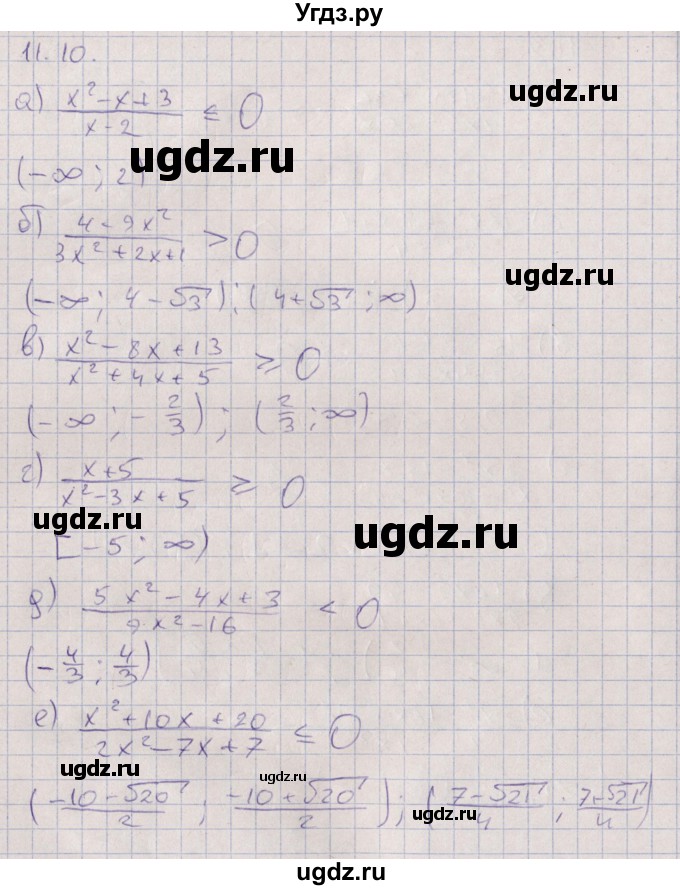 Угдз.ру
11.10.
ugdz.ru
а) (x² - x + 3)/(x - 2) ≤ 0
ugdz.ru
(-∞; 2)
б) (4 - 9x²)/(3x² + 2x + 1) > 0
ugdz.ru
(-∞; 4 - √3); (4 + √3; ∞)
в) (x² - 8x + 13)/(x² + 4x + 5) ≥ 0
(-∞; -2/3); (2/3; ∞)
г) (x + 5)/(x² - 3x + 5) ≥ 0
ugdz.ru ugdz.ru
[-5; ∞)
д) (5x² - 4x + 3)/(9x² - 16) < 0
(-4/3; 4/3)
е) (x² + 10x + 20)/(2x² - 7x + 7) ≤ 0
ugdz.ru ugdz.ru ugdz.ru
((-10 - √20)/2; (-10 + √20)/2); ((7 - √21)/4; (7 - √21)/4)
ugdz.ru
ugdz.ru